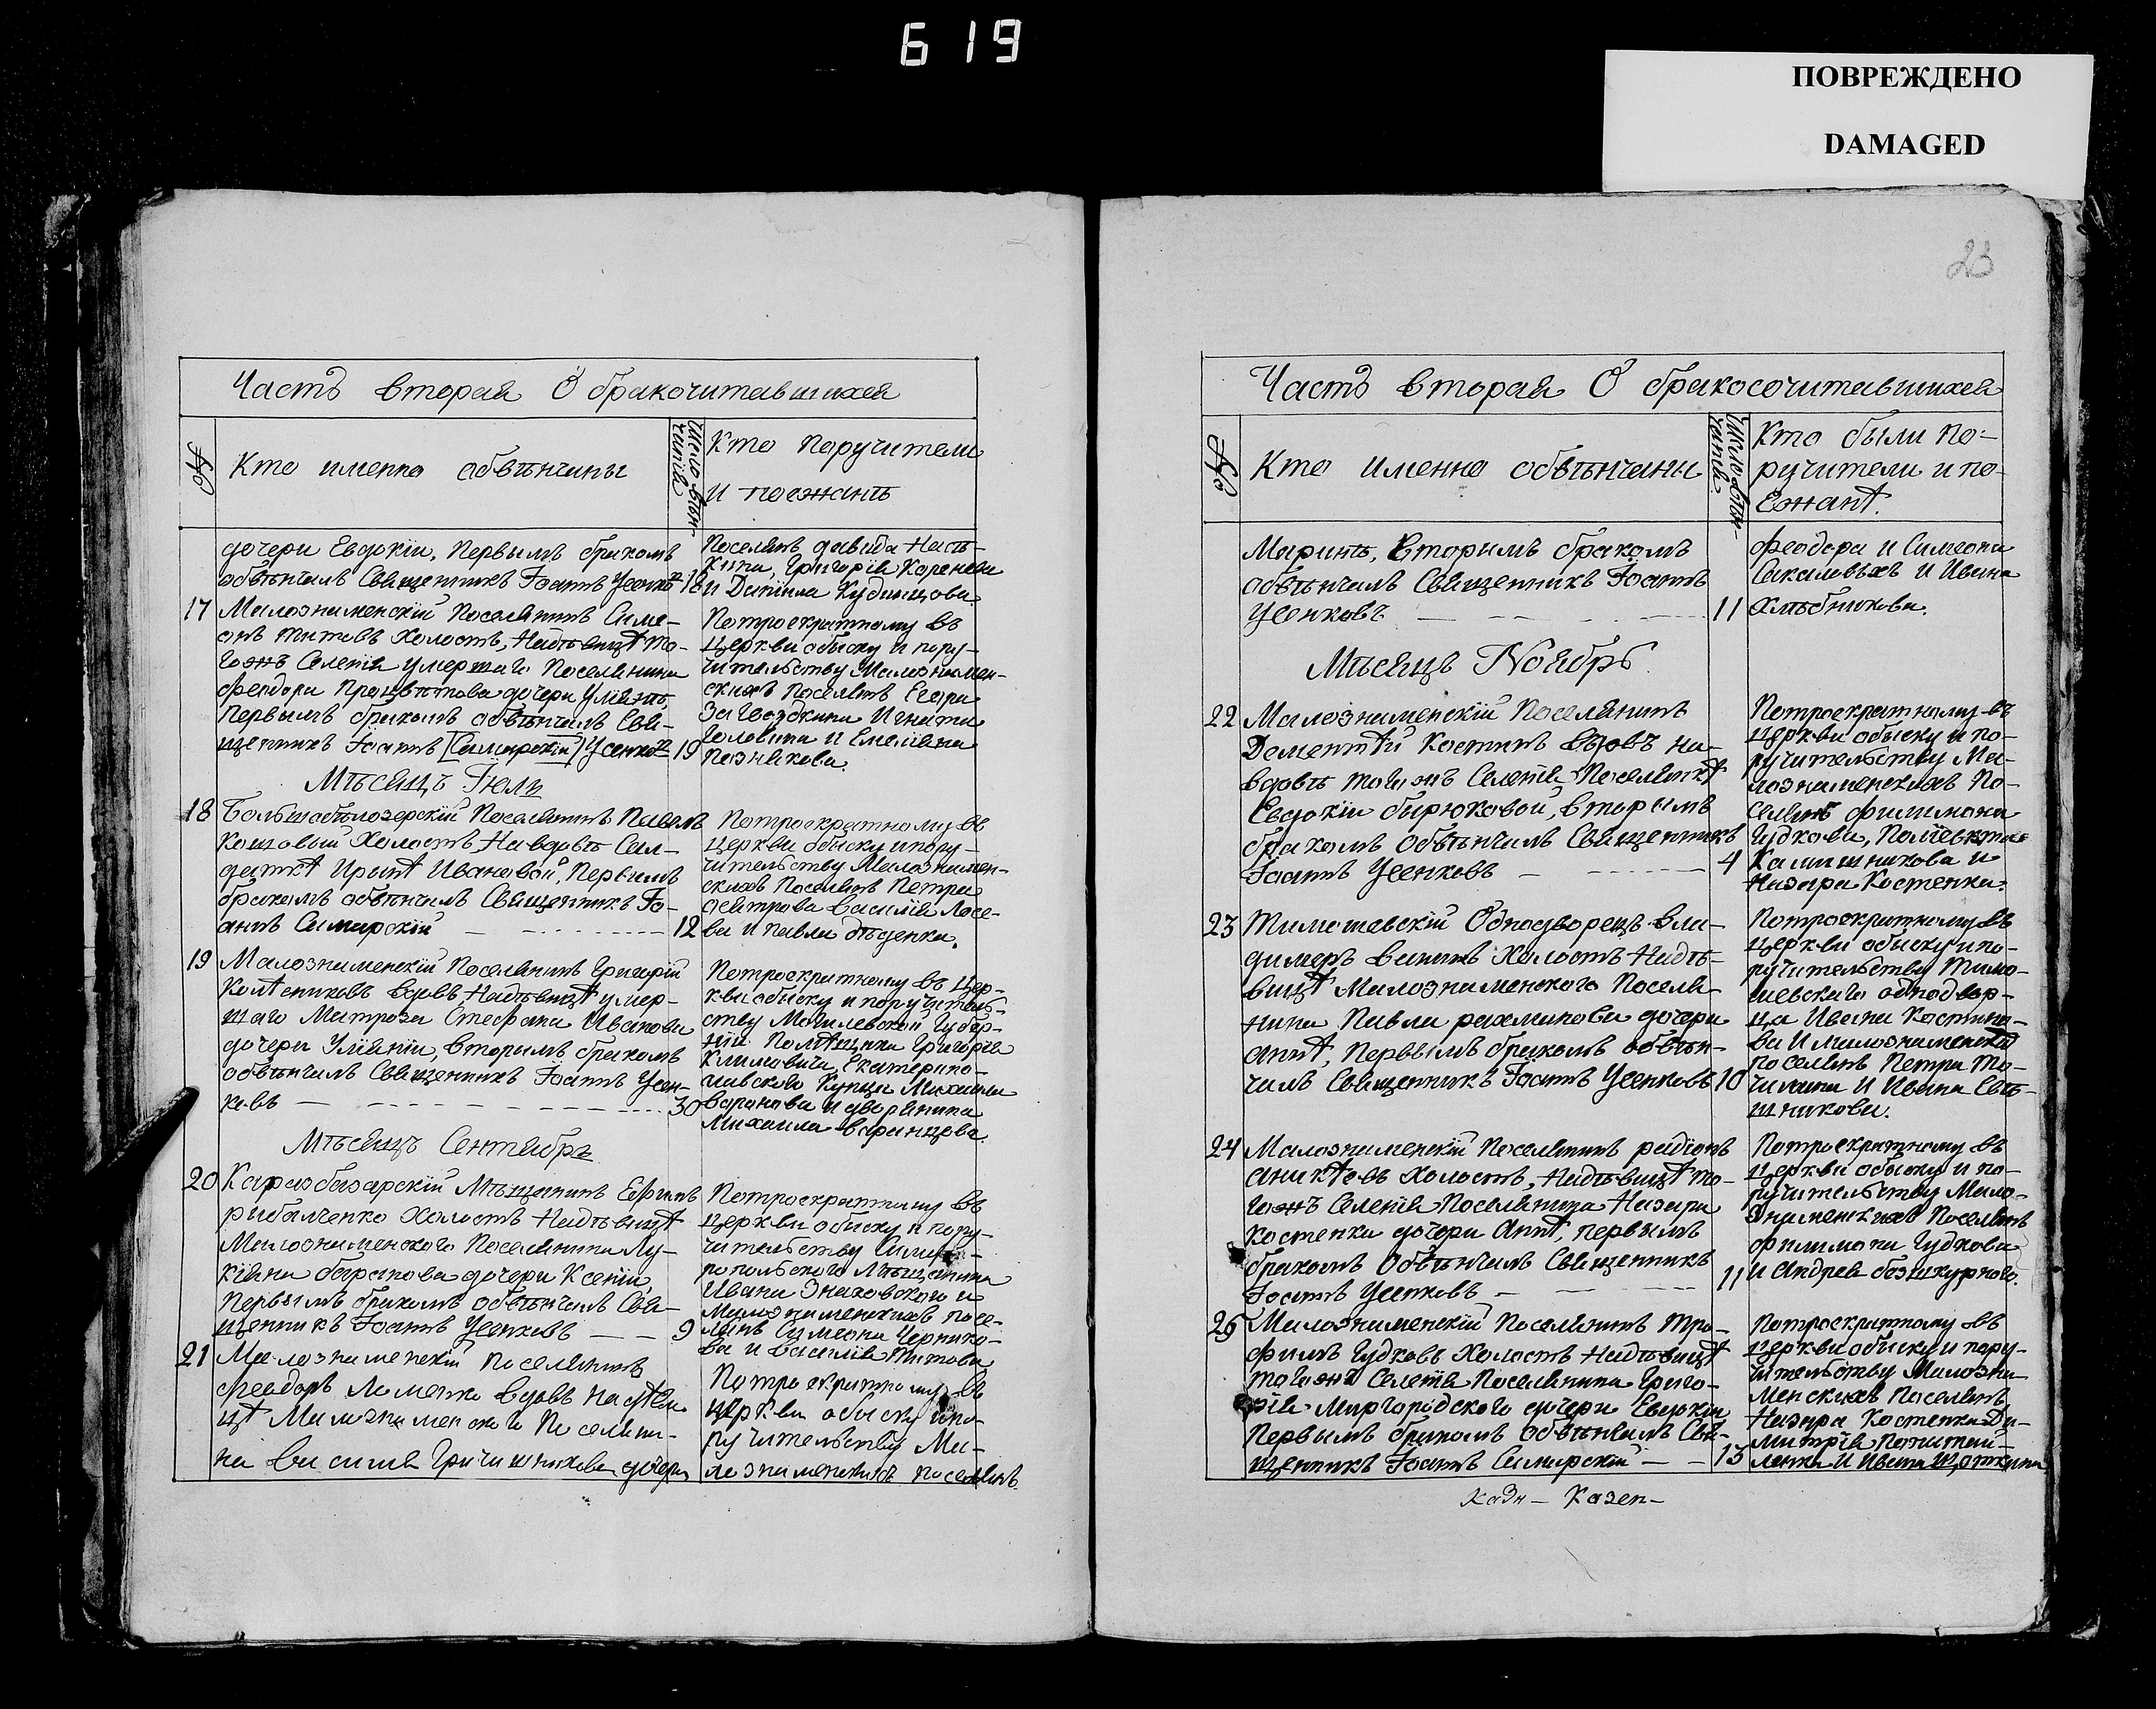 619
ПОВРЕЖДЕНО
DAMAGED
23
Часть вторая О бракочитавшихся
№
Кто именно обвѣнчаны
Число вѣн-
чаній
Кто Поручители
И поезжанѣ
дочери Евдокіи, Первымъ бракомъ
обвѣнчалъ Священникъ Іоаннъ Усенко
17 Малознаменскій Поселянинъ Симе-
онъ Титовъ Холостъ, На дѣвицѣ то-
гожъ Селенія умершаго Поселянина
Феодора Процвѣтова дочери Уліянѣ,
Первымъ бракомъ обвѣнчалъ Свя-
щенникъ Іоаннъ [Самарскій] Усенко 19
Поселянъ давида
Кина, Григорія Коренева
и Даніила Кудинцова.
Потроекратному въ
Церкви обыску и пору-
чительству Малознамен-
скихъ Поселянъ Егора
Загвоздкина Игната
Головина и Емеліана
Познякова.
Мѣсяцъ Іюль
18 Большебѣлозерскій Поселянинъ Павелъ
Кошовый Холостъ, На вдовѣ Сал-
даткѣ Иринѣ Ивановой, Первымъ
бракомъ обвѣнчалъ Священникъ Іо-
аннъ Самарскій 12
Потроекратному въ
Церкви обыску и пору-
чительству Малознамен-
скихъ Поселянъ Петра
Осетрова Василія Лосе-
ва и Павла дѣденка.
19 Малознаменскій Поселянинъ Григорій
Колѣсниковъ вдовъ, На дѣвицѣ умер-
шаго Матроза Стефана Иванова
дочери Уліяніи, вторымъ бракомъ
обвѣнчалъ Священникъ Іоаннъ Усен-
ковъ 30
Потроекратному въ Цер-
кви обыску и поручитель-
ству Могилевской Губер-
ніи Помѣщика Григорія
Климовича, Екатерино-
славского Купца Михаила
Воронова и дворянина
Михаила Варинцова.
Мѣсяцъ Сентябрь
20 Карасобазарскій Мѣщанинъ Ефимъ
рыбалченко Холостъ На дѣвицѣ
Малознаменского Поселянина Лу-
кіяна баранова дочери Ксеніи,
Первымъ бракомъ обвѣнчалъ Свя-
щенникъ Іоаннъ Усенковъ 9
Потроекратному въ
Церкви обыску и пору-
чительству Симфе-
ропольского Мѣщанина
Ивана Знаковского и
Малознаменскихъ посе-
лянъ Симеона Чернико-
ва и Василія Титова
21 Малознаменскій поселянинъ
Феодоръ Ломенко вдовъ на дѣви-
цѣ Малознаменского Поселяни-
на Василія Гричишникова дочери
Потроекратному въ
церкви обыску и по-
ручительству Ма-
лознаменскихъ поселянъ
Часть вторая О бракосочитавшихся
№
Кто именно обвѣнчаны
Число вѣн-
чаній
Кто были по-
ручители и по-
Езжанѣ.
Маринѣ, Вторымъ бракомъ
обвѣнчалъ Священникъ Іоаннъ
Усенковъ 11
Феодора и Симеона
Сакаловыхъ И Ивана
Хлѣбникова.
Мѣсяцъ Ноябрь
22 Малознаменскій Поселянинъ
Дементѣй Костинъ Вдовъ на
вдовѣ тогожъ Селенія Поселянкѣ
Евдокіи бирюковой, вторымъ
бракомъ обвѣнчалъ Священникъ
Іоаннъ Усенковъ 4
Потроекратному въ
Церкви обыску и по-
ручительству Ма-
лознаменскихъ По-
селянъ Филимона
Гудкова,
Калишникова и
Назара Костенка.
23 Тимошевскій Однодворецъ Вла-
димеръ Ванинъ Холостъ На дѣ-
вицѣ Малознаменского Поселя-
нина Павла рахманова дочери
Аннѣ, Первымъ бракомъ обвѣн-
чалъ Священникъ Іоаннъ Усенковъ 10
Потроекратному въ
Церкви обыску и по-
ручительству Тимо-
шевскаго однодвор-
ца Ивана Костина-
ва И малознаменскихъ
поселянъ Петра То-
чилина И Ивана Свѣ-
шникова.
24 Малознаменскій Поселянинъ радіонъ
Аникѣевъ Холостъ, На дѣвицѣ то-
гожъ Селенія Поселянина Назара
Костенка дочери Аннѣ, первымъ
бракомъ Обвѣнчалъ Священникъ
Іоаннъ Усенковъ 11
Потроекратному въ
Церкви обыску и по-
ручительству Мало-
Знаменскихъ Поселянъ
Филимона Гудкова
И Андрея безшкурного.
25 Малознаменскій Поселянинъ Тро-
фимъ Гудковъ Холостъ На дѣвицѣ
тогожъ Селенія Поселянина Григо-
рія Миргородского дочери Евдокіи
Первымъ бракомъ Обвѣнчалъ Свя-
щенникъ Іоаннъ Самарскій 13
Потроекратному въ
Церкви обыску и пору-
чительству Малозна-
менскихъ Поселянъ
Назара Костенка Ди-
митрія
ленка И Ивана
Казн- Казен-